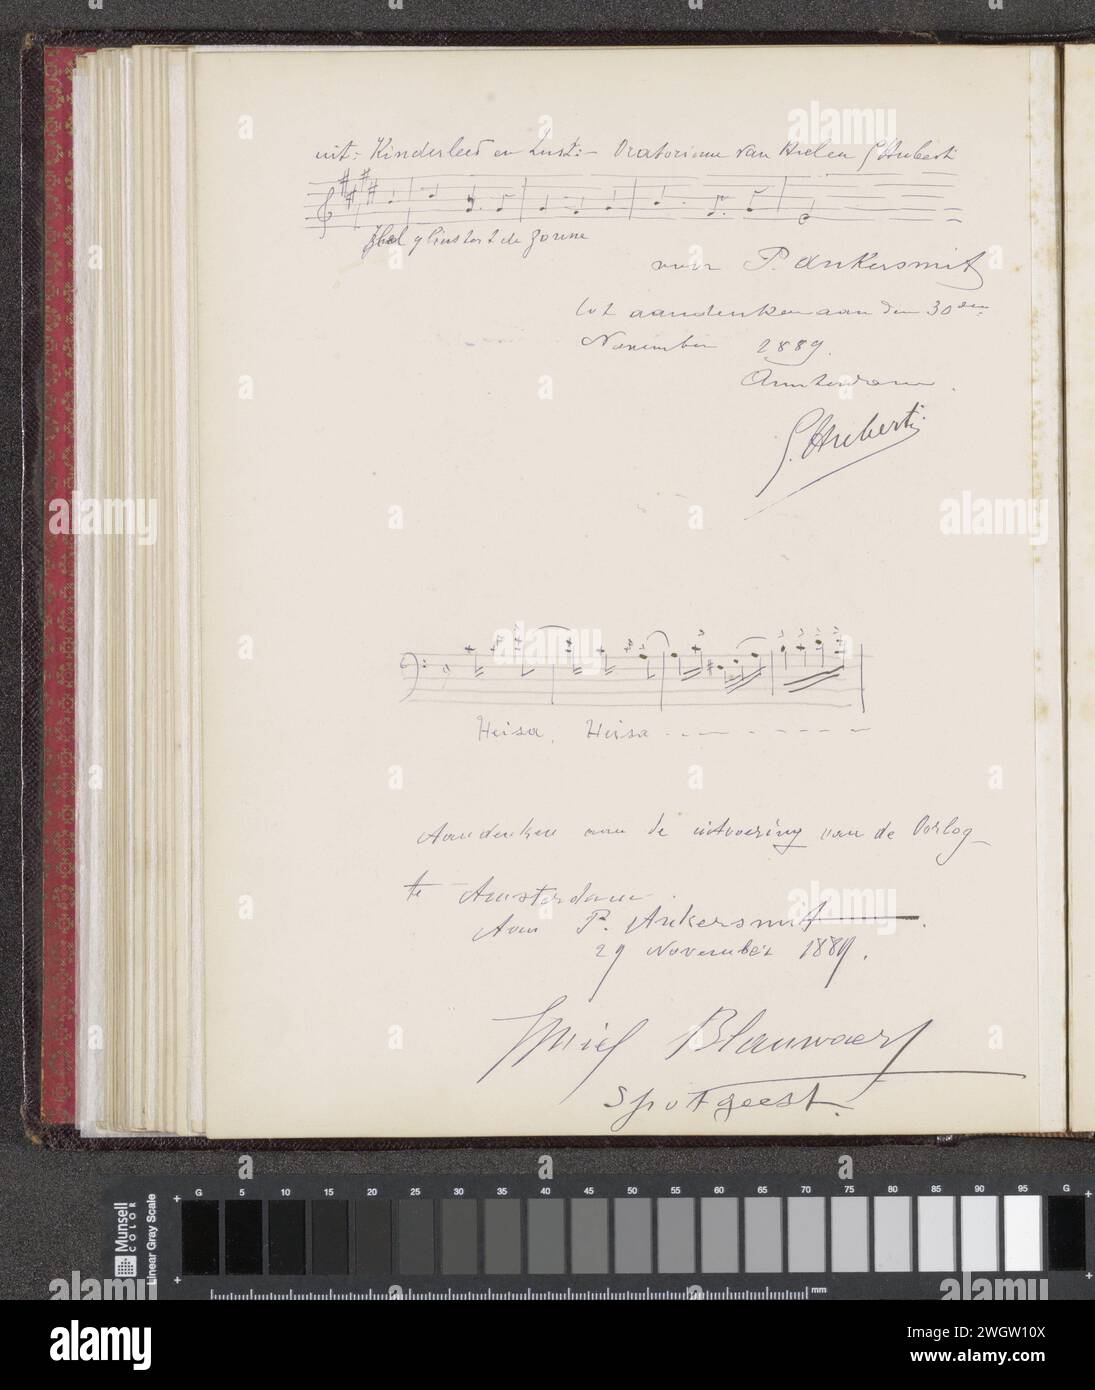 uit: Kinderlust en Lust: – Oratorium van G Huberti
de zonne
voor P. Ankersmit
tot aandenken aan den 30sten
November 1889.
Amsterdam.
G. Huberti
Heisa, Heisa
Aandenken aan de uitvoering van de Oorlog
te Amsterdam.
Aan P. Ankersmit.
29 November 1889.
Blauwaert
Spotgeest.
Munsell
COLOR
Linear Gray Scale
G 5 10 15 20 25 30 35 40 45 50 55 60 65 70 75 80 85 90 95 G
mm
alamy
Image ID: 2WGW10X
www.alamy.com